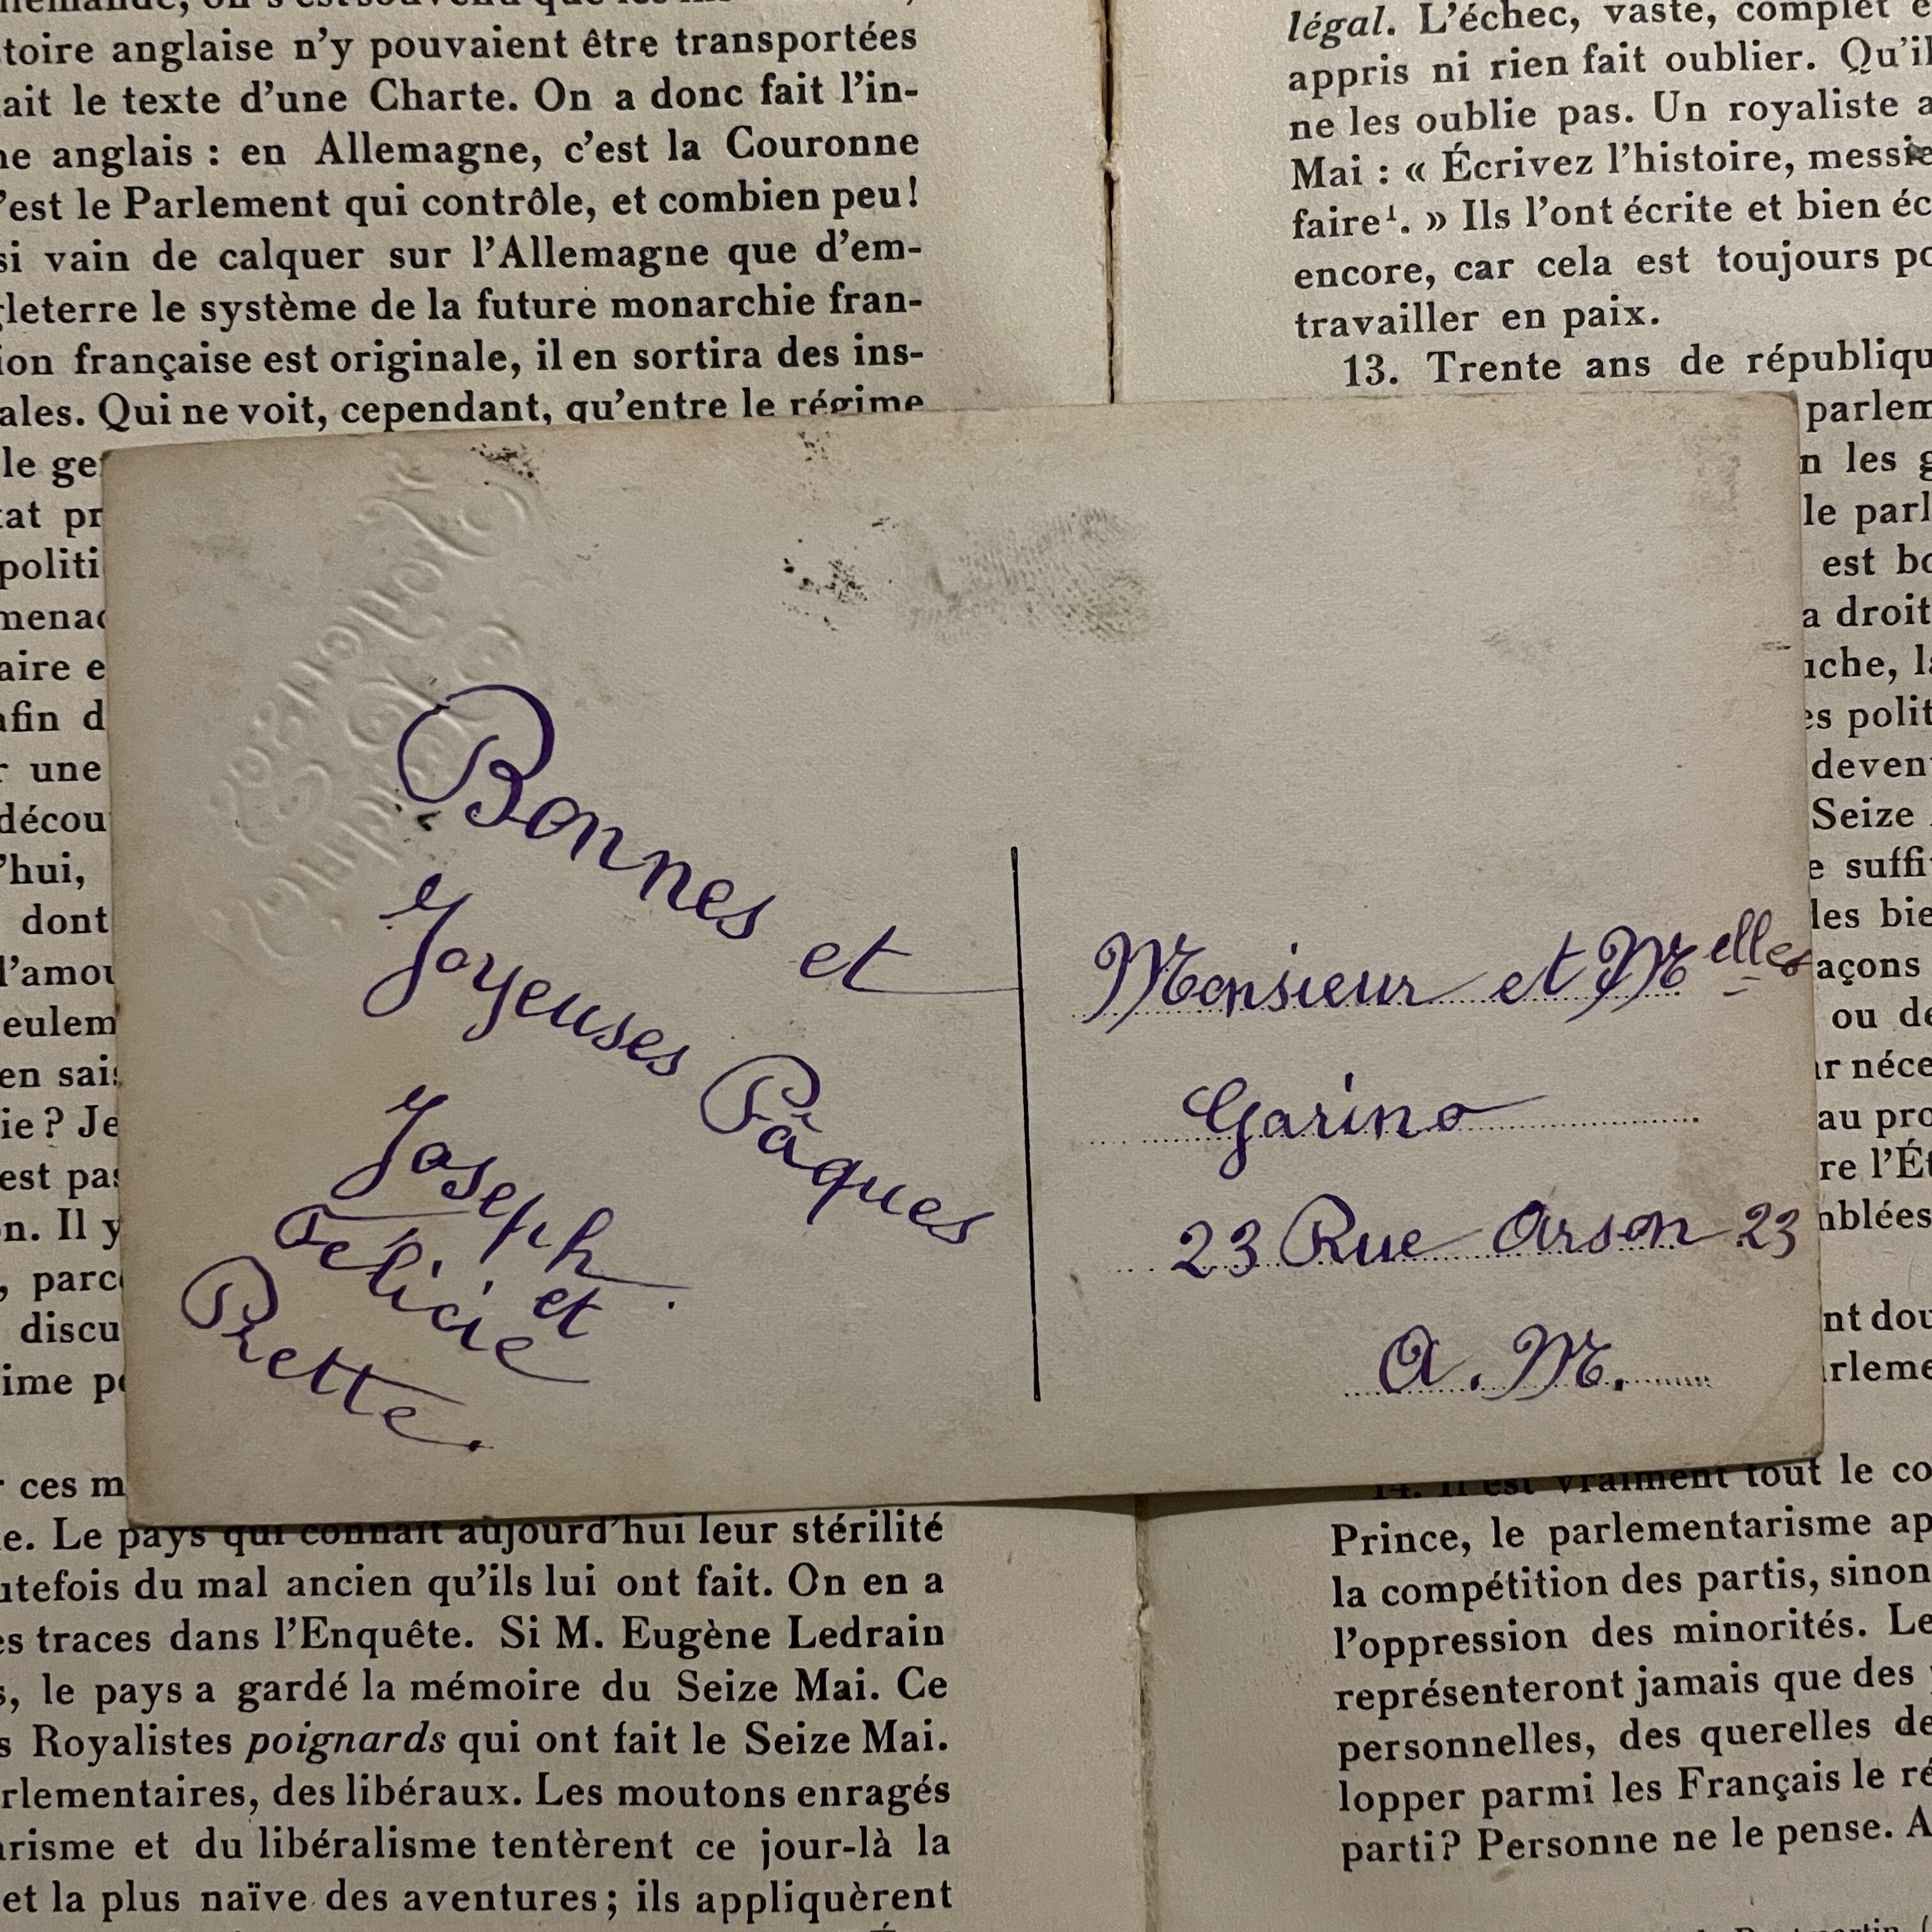 stoire anglaise n'y pouvaient être transportées
ait le texte d'une Charte. On a donc fait l'in-
anglais : en Allemagne, c'est la Couronne
c'est le Parlement qui contrôle, et combien peu!
si vain de calquer sur l'Allemagne que d'em-
gleterre le système de la future monarchie fran-
ion française est originale, il en sortira des ins-
ales. Qui ne voit, cependant, qu'entre le régime
le ge
tat pr
politi
menac
aire e
afin d
r une
décou
'hui,
dont
l'amou
seulem
en sais
ie ? Je
est pas
n. Il y
, parc
discu
ime p
r ces m
e. Le pays qui connaît aujourd'hui leur stérilité
utefois du mal ancien qu'ils lui ont fait. On en a
es traces dans l'Enquête. Si M. Eugène Ledrain
s, le pays a gardé la mémoire du Seize Mai. Ce
s Royalistes poignards qui ont fait le Seize Mai.
rlementaires, des libéraux. Les moutons enragés
arisme et du libéralisme tentèrent ce jour-là la
et la plus naïve des aventures ; ils appliquèrent
Bonnes et
Joyeuses Pâques
Joseph
et
Félicie
Prette.
Monsieur et Melles
Garino
23 Rue Arson 23
A. M.
légal. L'échec, vaste, complet e
appris ni rien fait oublier. Qu'il
ne les oublie pas. Un royaliste a
Mai : « Écrivez l'histoire, messie
faire¹. » Ils l'ont écrite et bien éc
encore, car cela est toujours po
travailler en paix.
13. Trente ans de républiqu
parlem
n les g
le parl
est bo
a droit
uche, la
es polit
deven
Seize
e suffi
les bie
açons
ou de
ur néce
au pro
re l'Ét
mblées
nt dou
arleme
14. Il est vraiment tout le co
Prince, le parlementarisme ap
la compétition des partis, sinon
l'oppression des minorités. Le
représenteront jamais que des
personnelles, des querelles de
lopper parmi les Français le ré
parti ? Personne ne le pense. A